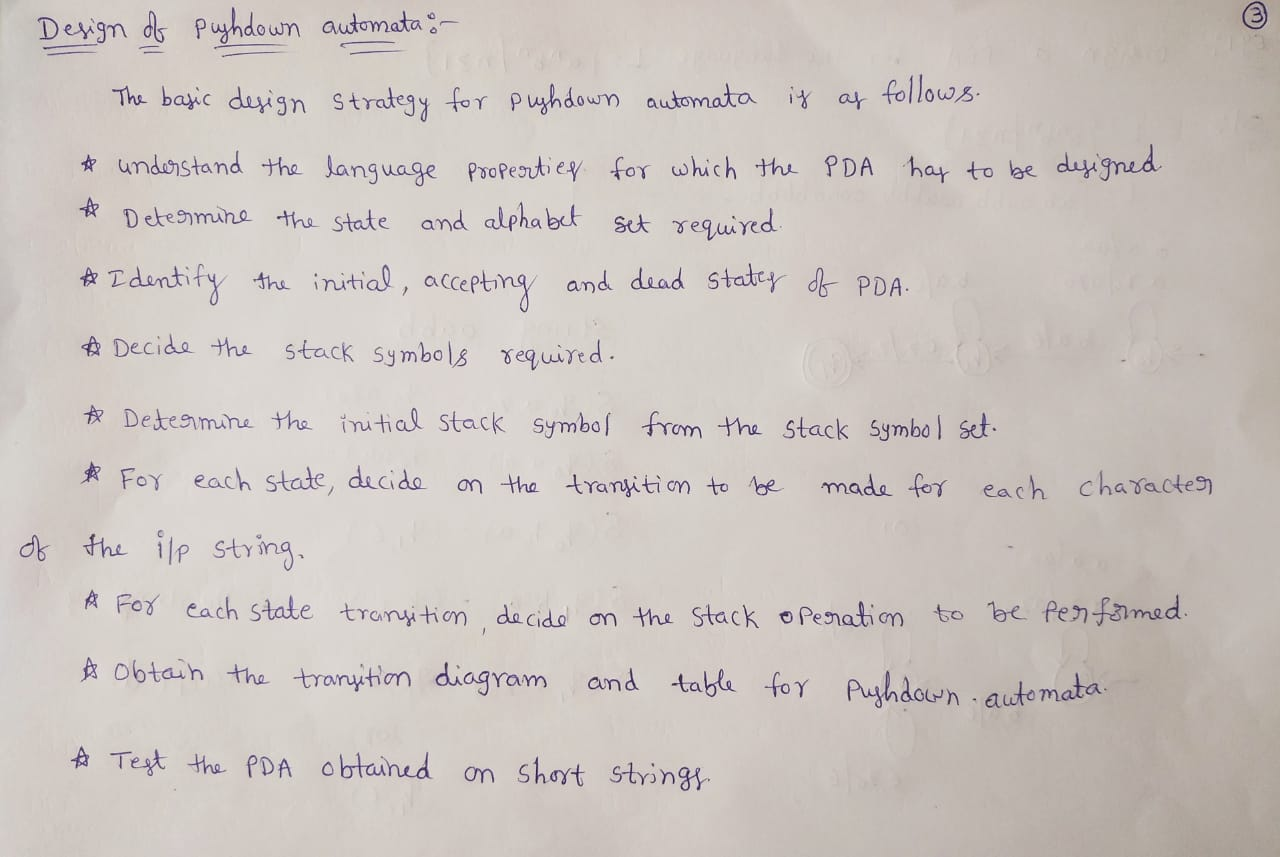 Design of Pushdown automata:-
③
The basic design strategy for pushdown automata is as follows.
☆ understand the language properties for which the PDA has to be designed
☆ Determine the state and alphabet set required.
☆ Identify the initial, accepting and dead states of PDA.
☆ Decide the stack symbols required.
☆ Determine the initial stack symbol from the stack symbol set.
☆ For each state, decide on the transition to be made for each character
of the i/p string.
☆ For each state transition, decide on the stack operation to be performed.
☆ Obtain the transition diagram and table for Pushdown automata.
☆ Test the PDA obtained on short strings.